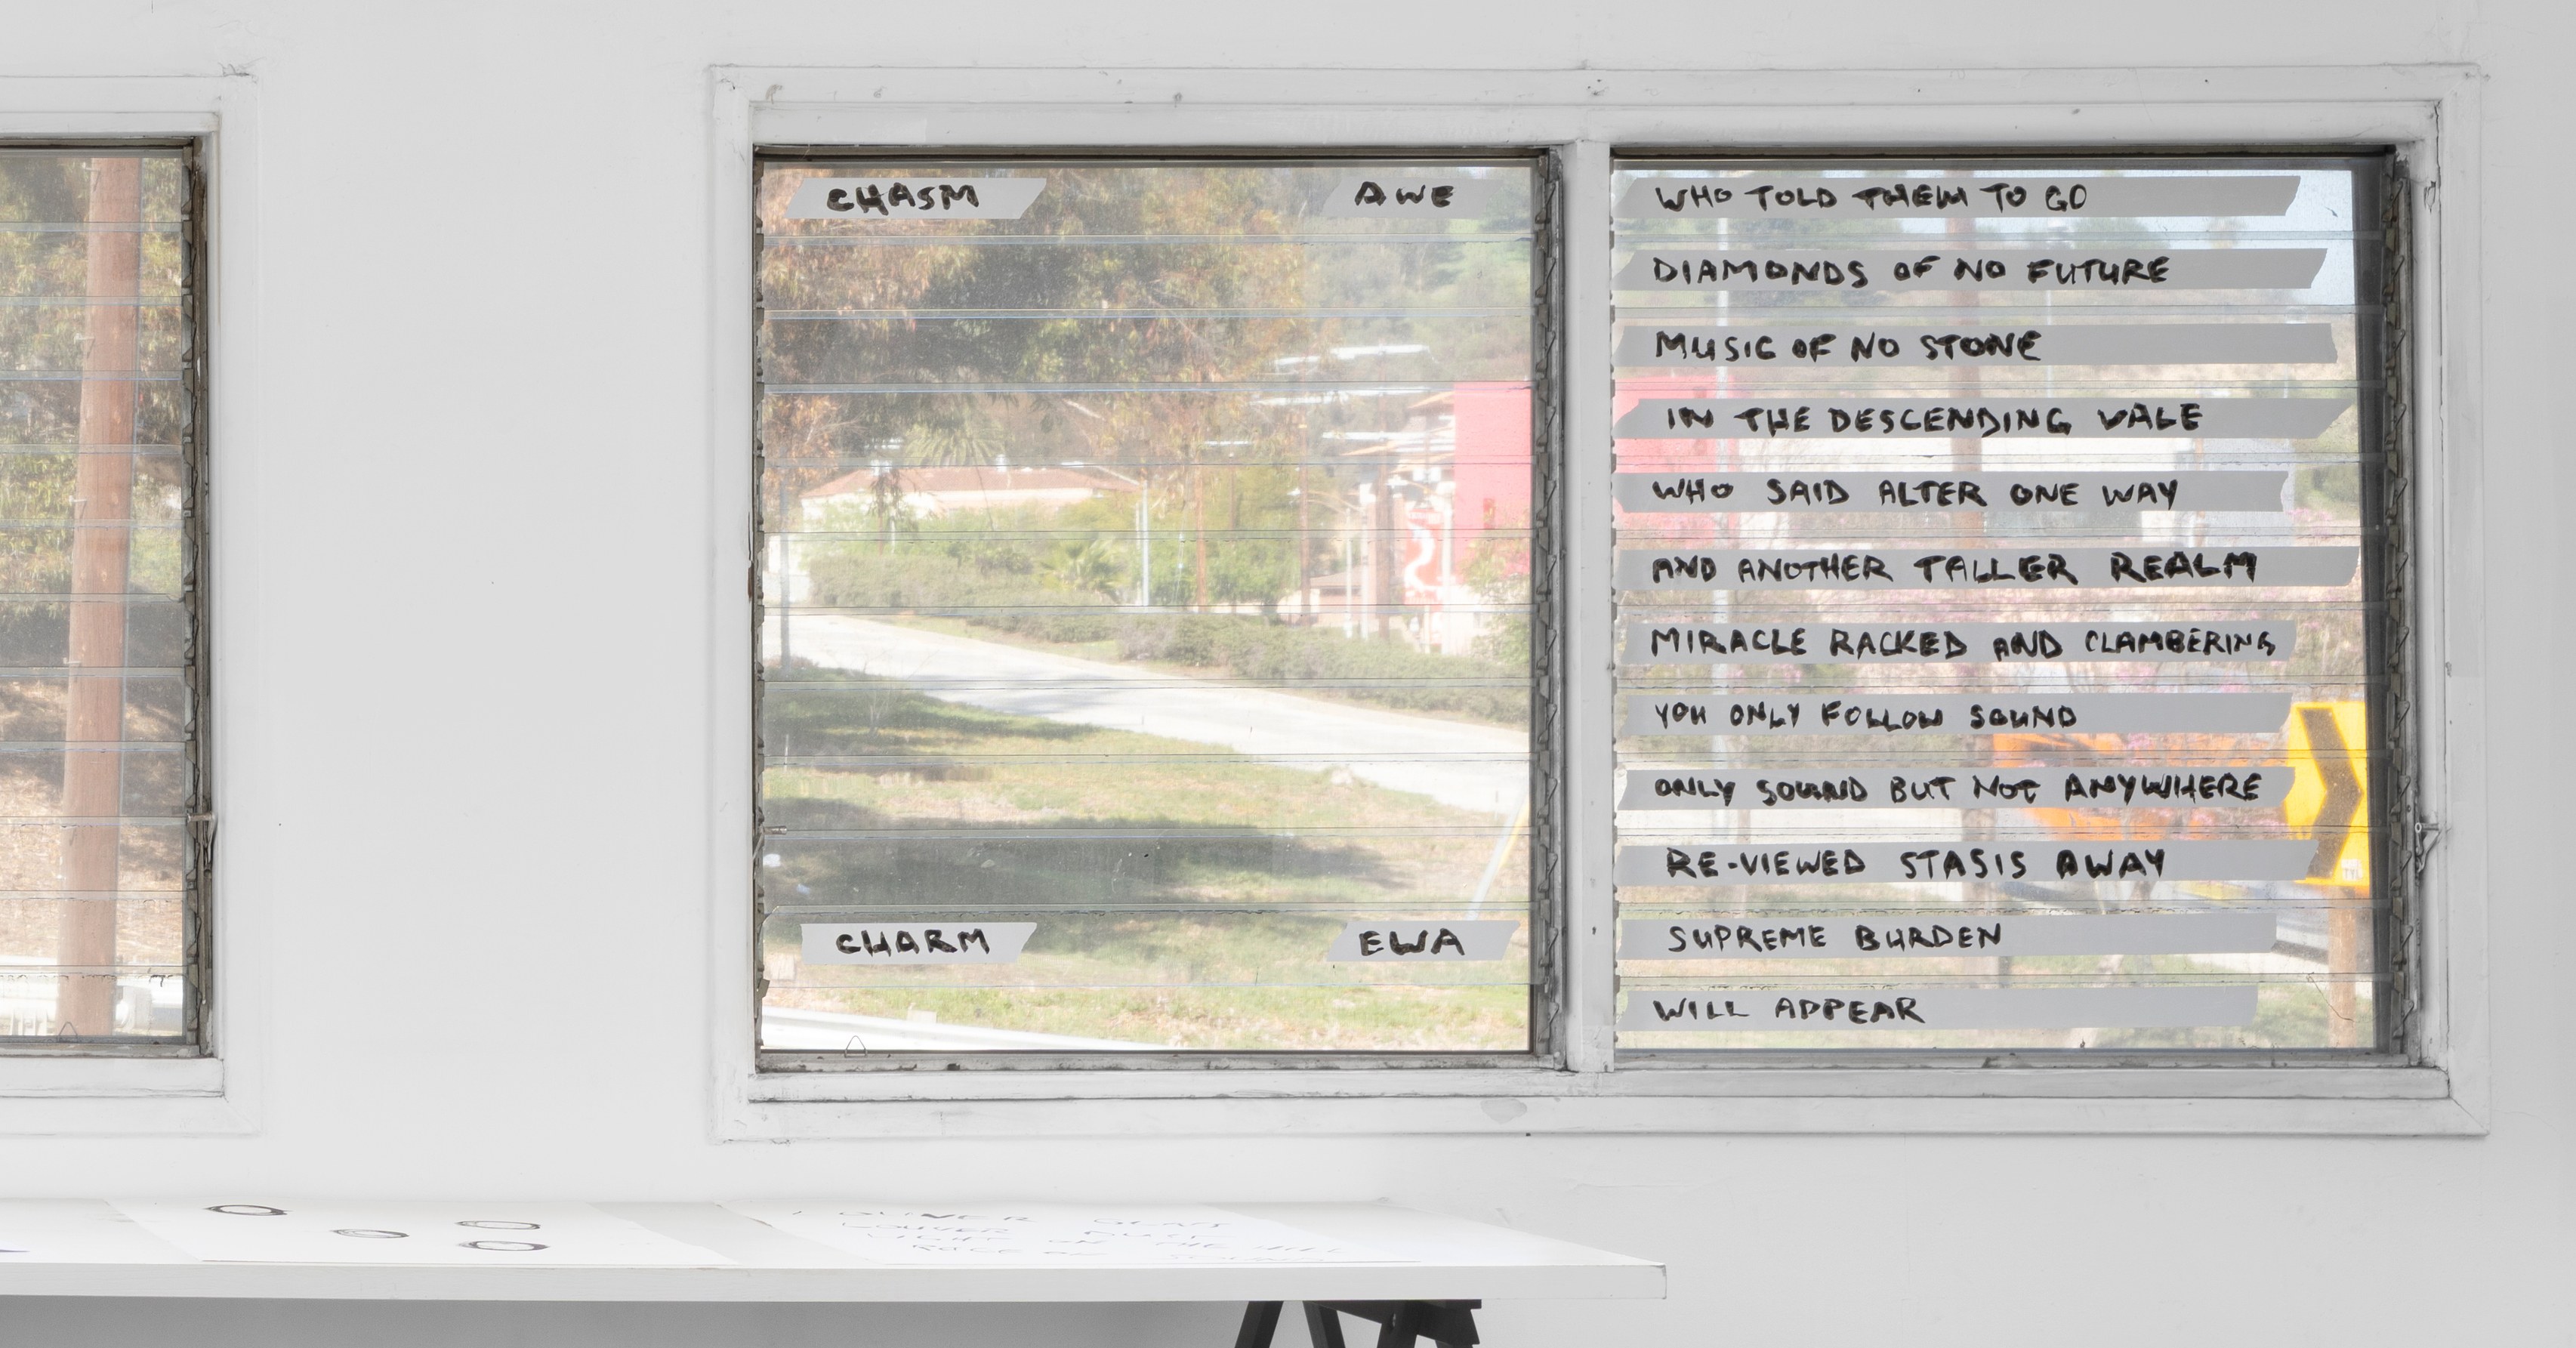 CHASM AWE
CHARM EWA
WHO TOLD THEM TO GO
DIAMONDS OF NO FUTURE
MUSIC OF NO STONE
IN THE DESCENDING VALE
WHO SAID ALTER ONE WAY
AND ANOTHER TALLER REALM
MIRACLE RACKED AND CLAMBERING
YOU ONLY FOLLOW SOUND
ONLY SOUND BUT NOT ANYWHERE
RE-VIEWED STASIS AWAY
SUPREME BURDEN
WILL APPEAR
LOUVER
LOUVER
LIGHT ON THE HILL